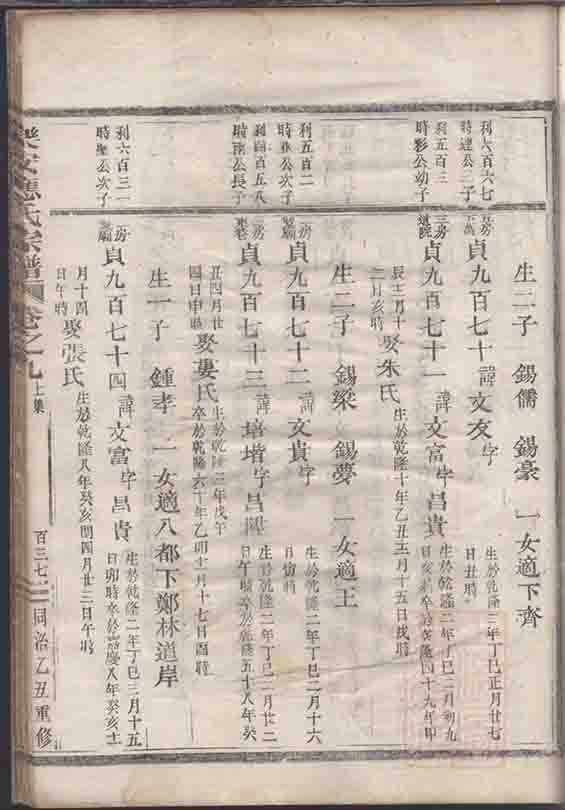 生二子 錫儒 錫豪 一女適下齊
利六百六七
時達公三子
房
貞九百七十 諱文友 字
生於乾隆二年丁巳正月廿七
日丑時
利五百三
時彩公幼子
三房
貞九百七十一 諱文富 字昌貴
生於乾隆二年丁巳二月初九
日亥時卒於乾隆四十九年甲
辰十二月十
二日亥時
娶朱氏
生於乾隆十年乙丑五月十五日戌時
生二子 錫梁 錫夢 一女適王
利五百二
時 公次子
房
貞九百七十二 諱文貴 字
生於乾隆二年丁巳二月十六
日寅時
利四百五八
時南公長子
房
貞九百七十三 諱培堦 字昌
生於乾隆二年丁巳二月廿二
日午時卒於乾隆五十八年癸
丑四月廿
四日申時
娶婁氏
生於乾隆三年戊午
卒於乾隆六十年乙卯十一月十七日酉時
生一子 鍾孝 一女適八都下鄭林道岸
利六百三一
時聖公次子
一房
貞九百七十四 諱文富 字昌貴
生於乾隆二年丁巳三月十五
日卯時卒於嘉慶八年癸亥十
月十四
日午時
娶張氏
生於乾隆八年癸亥閏四月廿三日午時
樂安應氏宗譜 卷之九 上集 百三七 同治乙丑重修